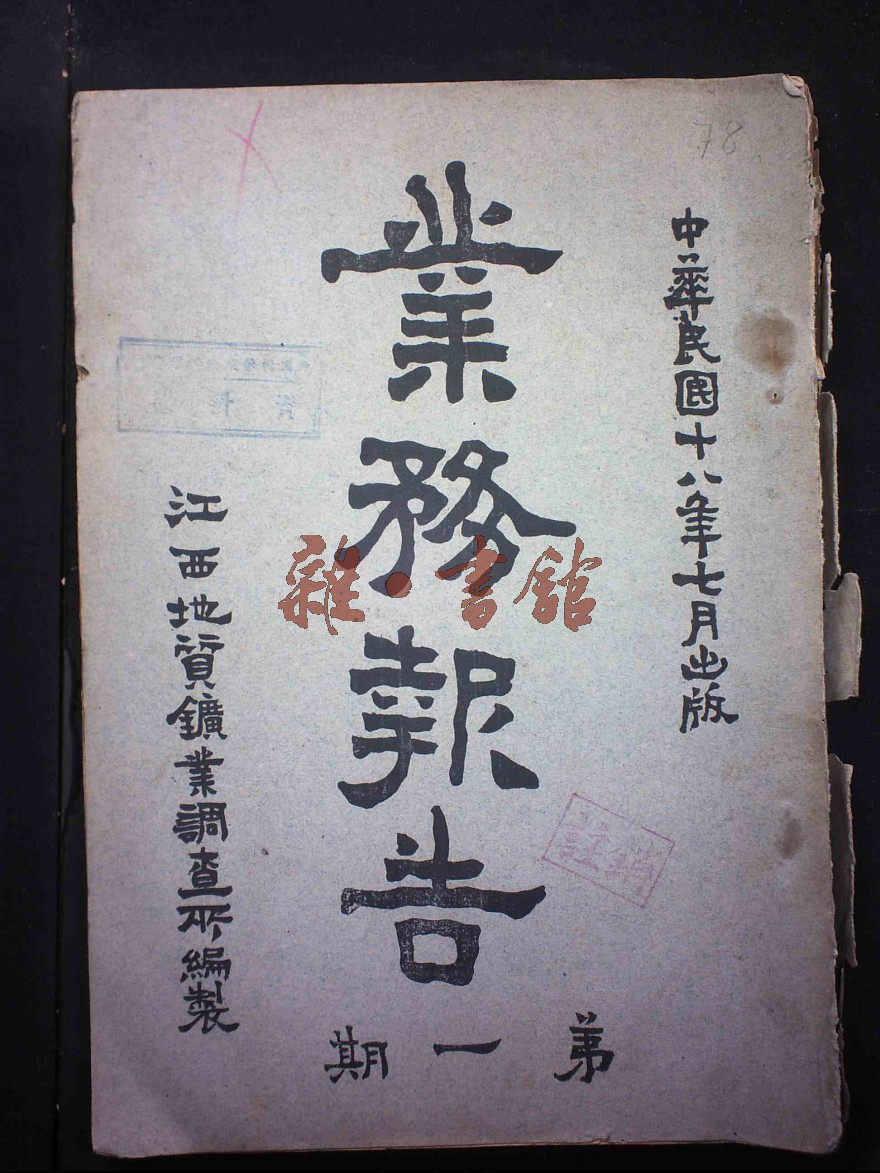 78
中華民國十八年七月出版
業務報告
第一期
江西地質鑛業調查所編製
註銷
雜·書館